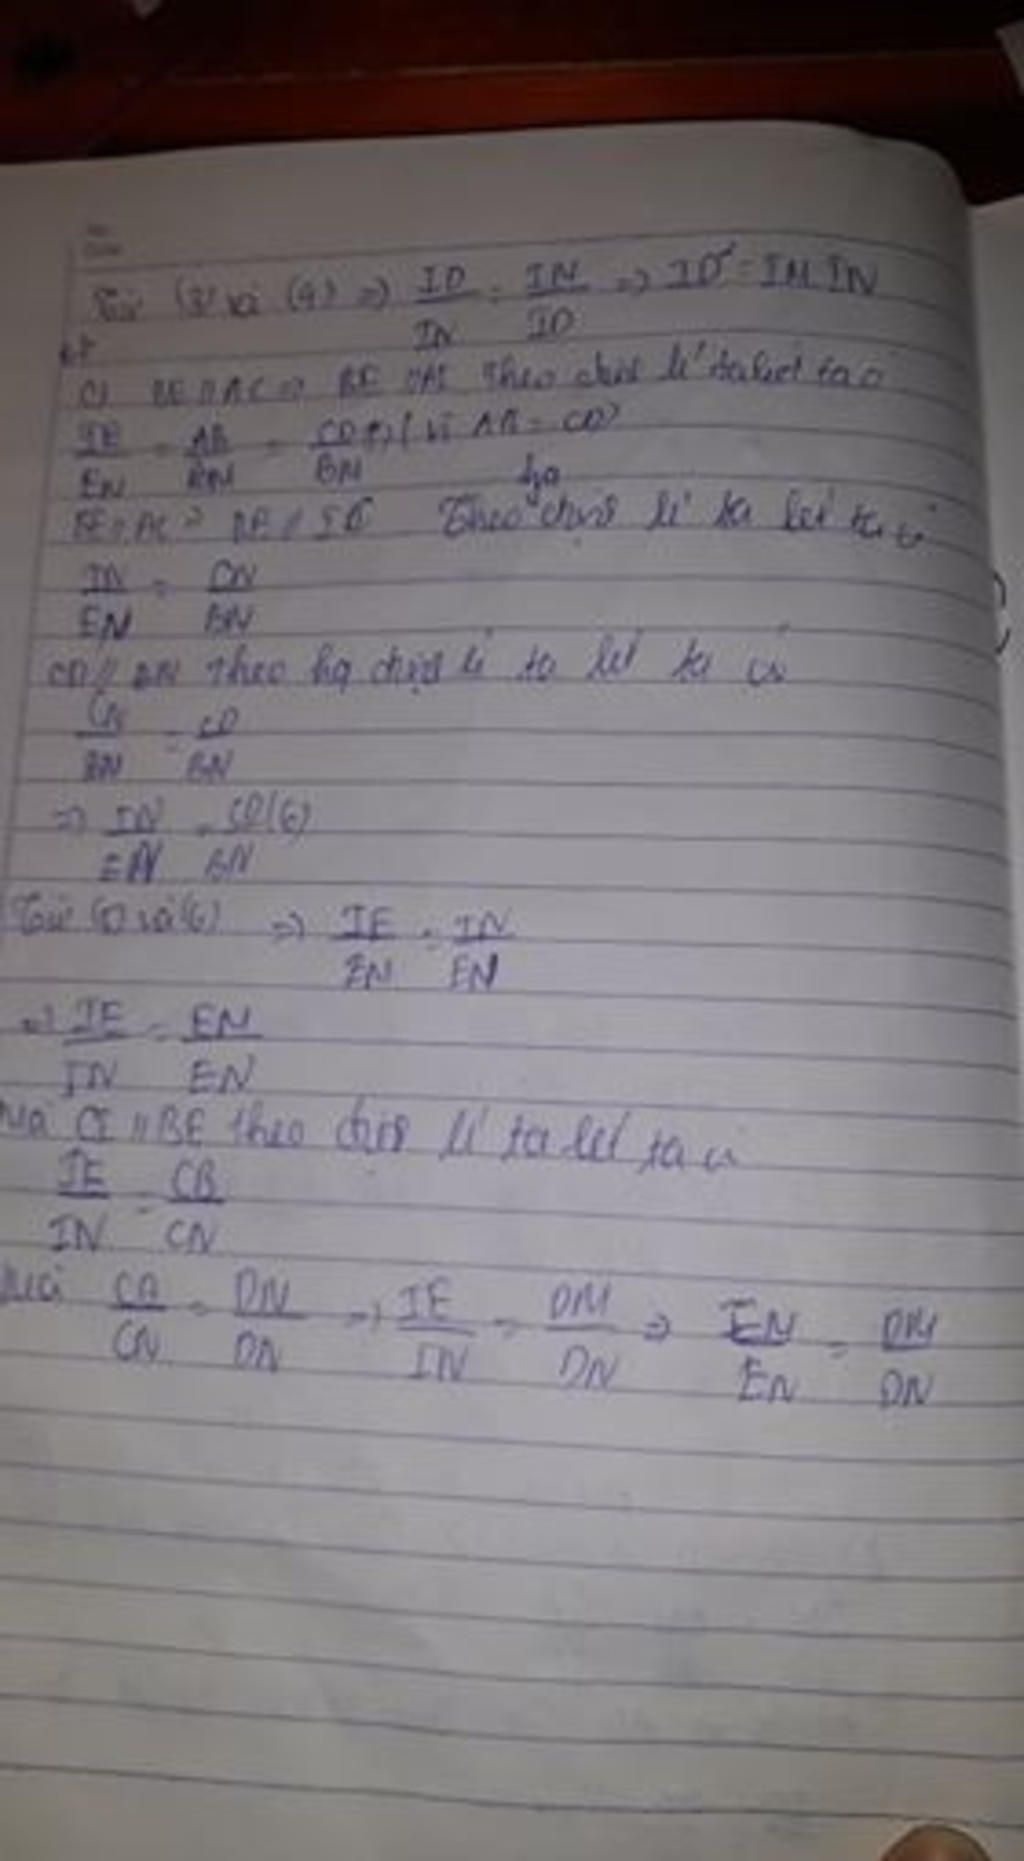 Từ (3) và (4) => ID/IN = IN/ID => ID² = IM IN
c) BE // AC => BE // AI Theo định lí talet ta có
IE/EN = AB/BN = CD/BN (vì AB = CD)
BE // AC => BE // IC Theo hq định lí ta let ta có
IN/EN = CN/BN
CD // BM Theo hq định lí ta let ta có
CN/BN = CD/BN
=> IN/EN = CD/BN (6)
Từ (5) và (6) => IE/EN = IN/EN
=> IE/IN = EN/EN
mà CI // BE theo định lí ta let ta có
IE/IN = CB/CN
mà CB/CN = DN/DN => IE/IN = DM/DN => EN/EN = DM/DN